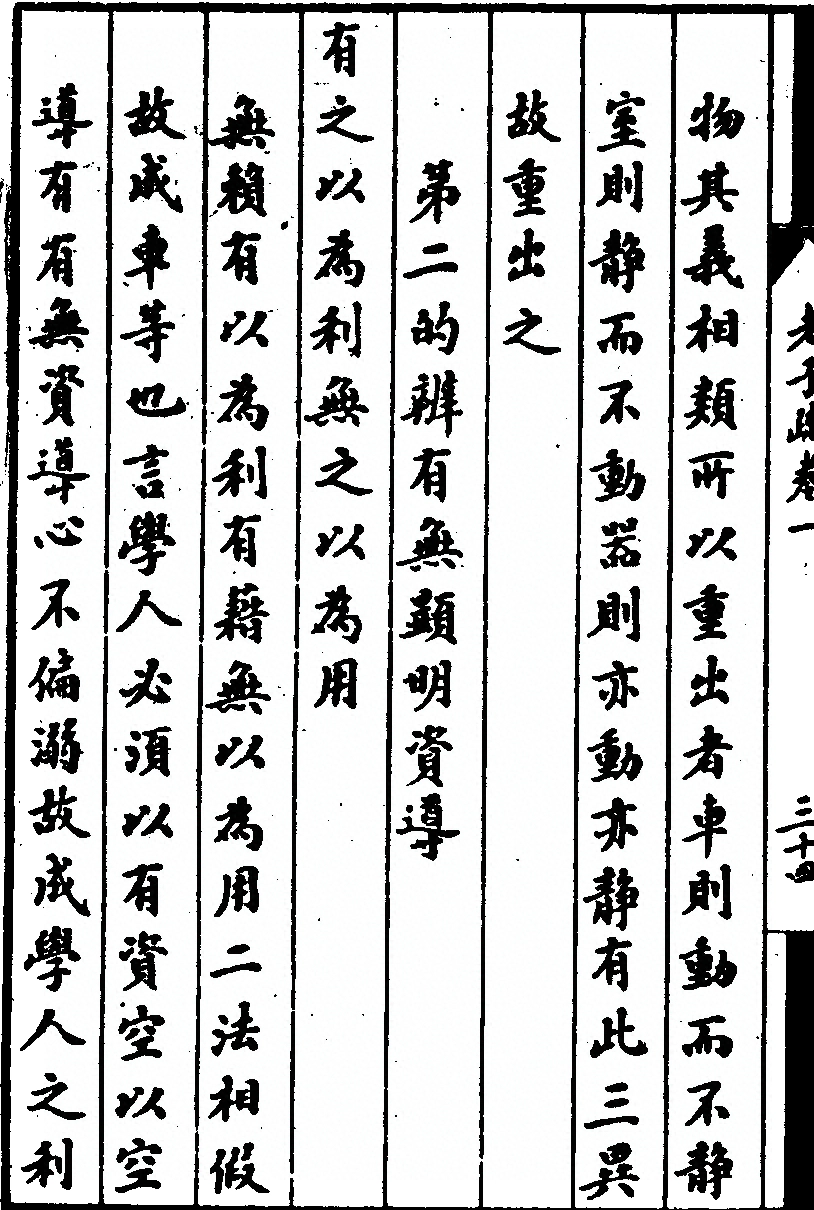 老子疏卷一
三十四
物其義相類所以重出者車則動而不静
室則静而不動器則亦動亦静有此三異
故重出之
第二的辨有無顯明資導
有之以為利無之以為用
無賴有以為利有藉無以為用二法相假
故成車等也言學人必須以有資空以空
導有有無資導心不偏溺故成學人之利